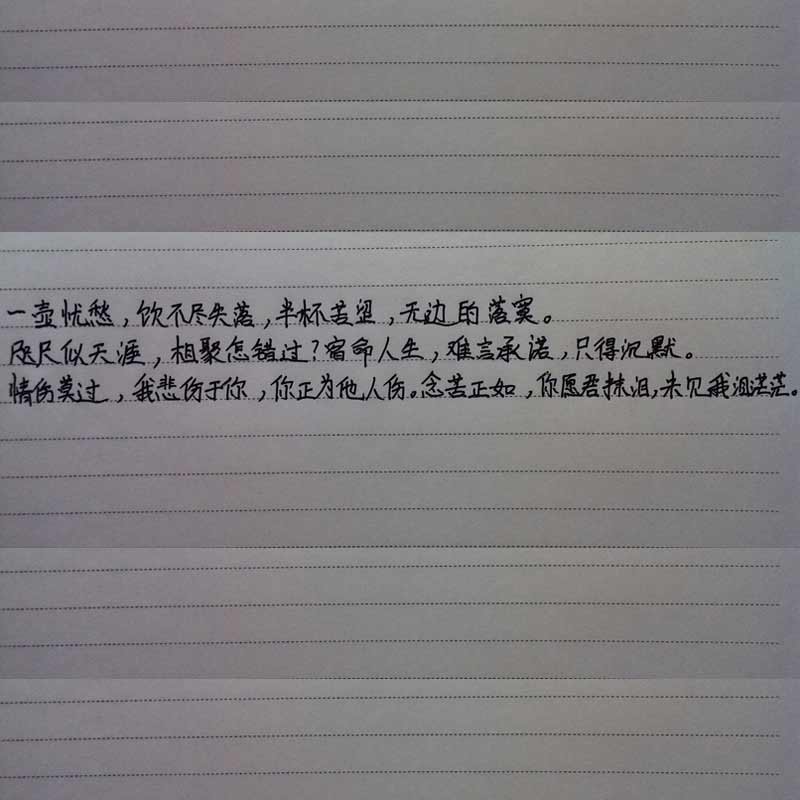 一壶忧愁，饮不尽失落，半杯苦涩，无边的落寞。
咫尺似天涯，相聚怎错过？宿命人生，难言承诺，只得沉默。
情伤莫过，我悲伤于你，你正为他人伤。念苦正如，你愿君抹泪，未见我泪茫茫。